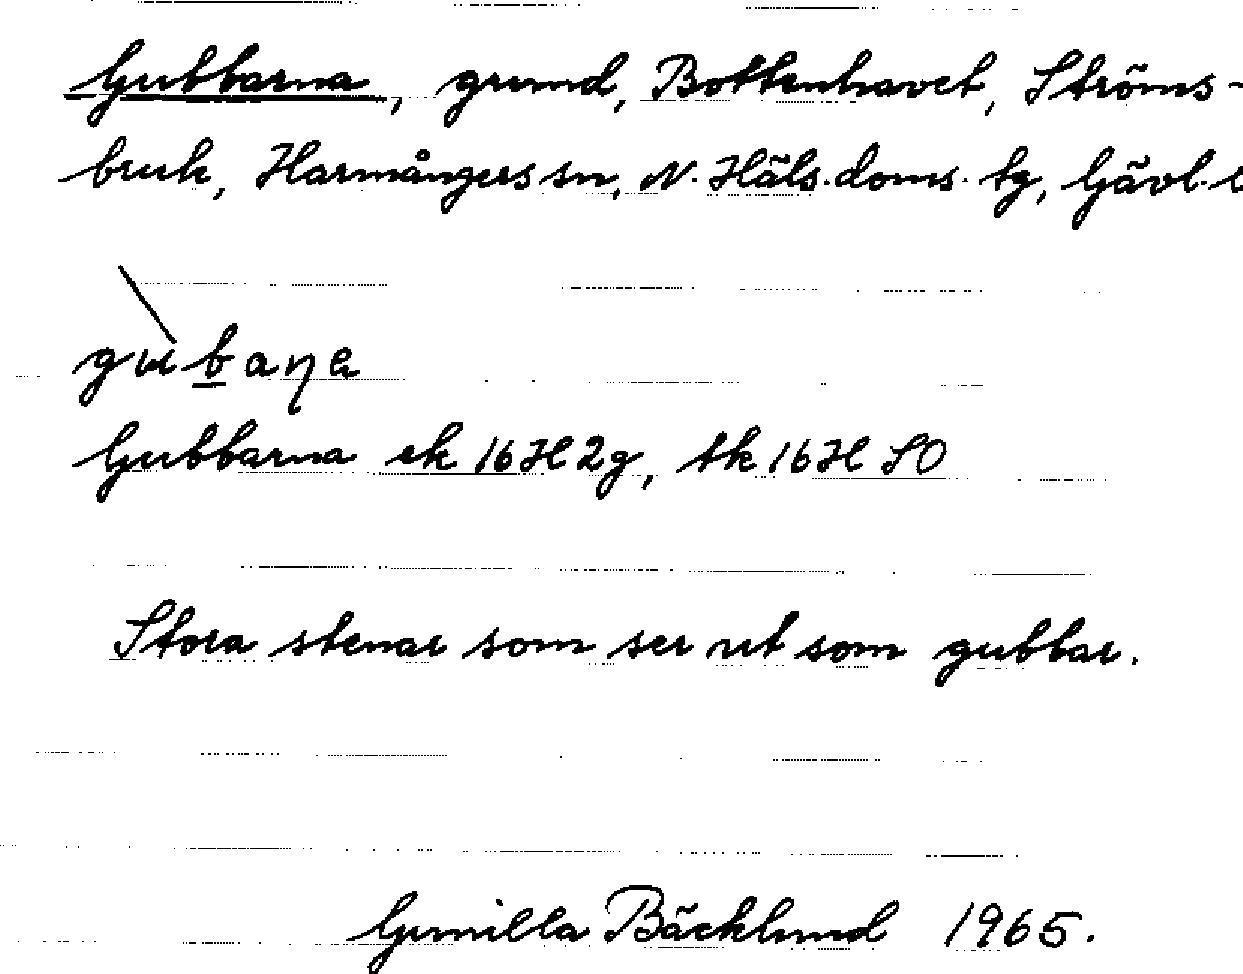 Gubbarna, grund, Bottenhavet, Ströms-
bruk, Harmångers sn, N. Häls. doms. tg, Gävl. l
gu̇b̲aɳa
Gubbarna ek 16H2g, tk 16H SO
Stora stenar som ser ut som gubbar.
Gunilla Bäcklund 1965.